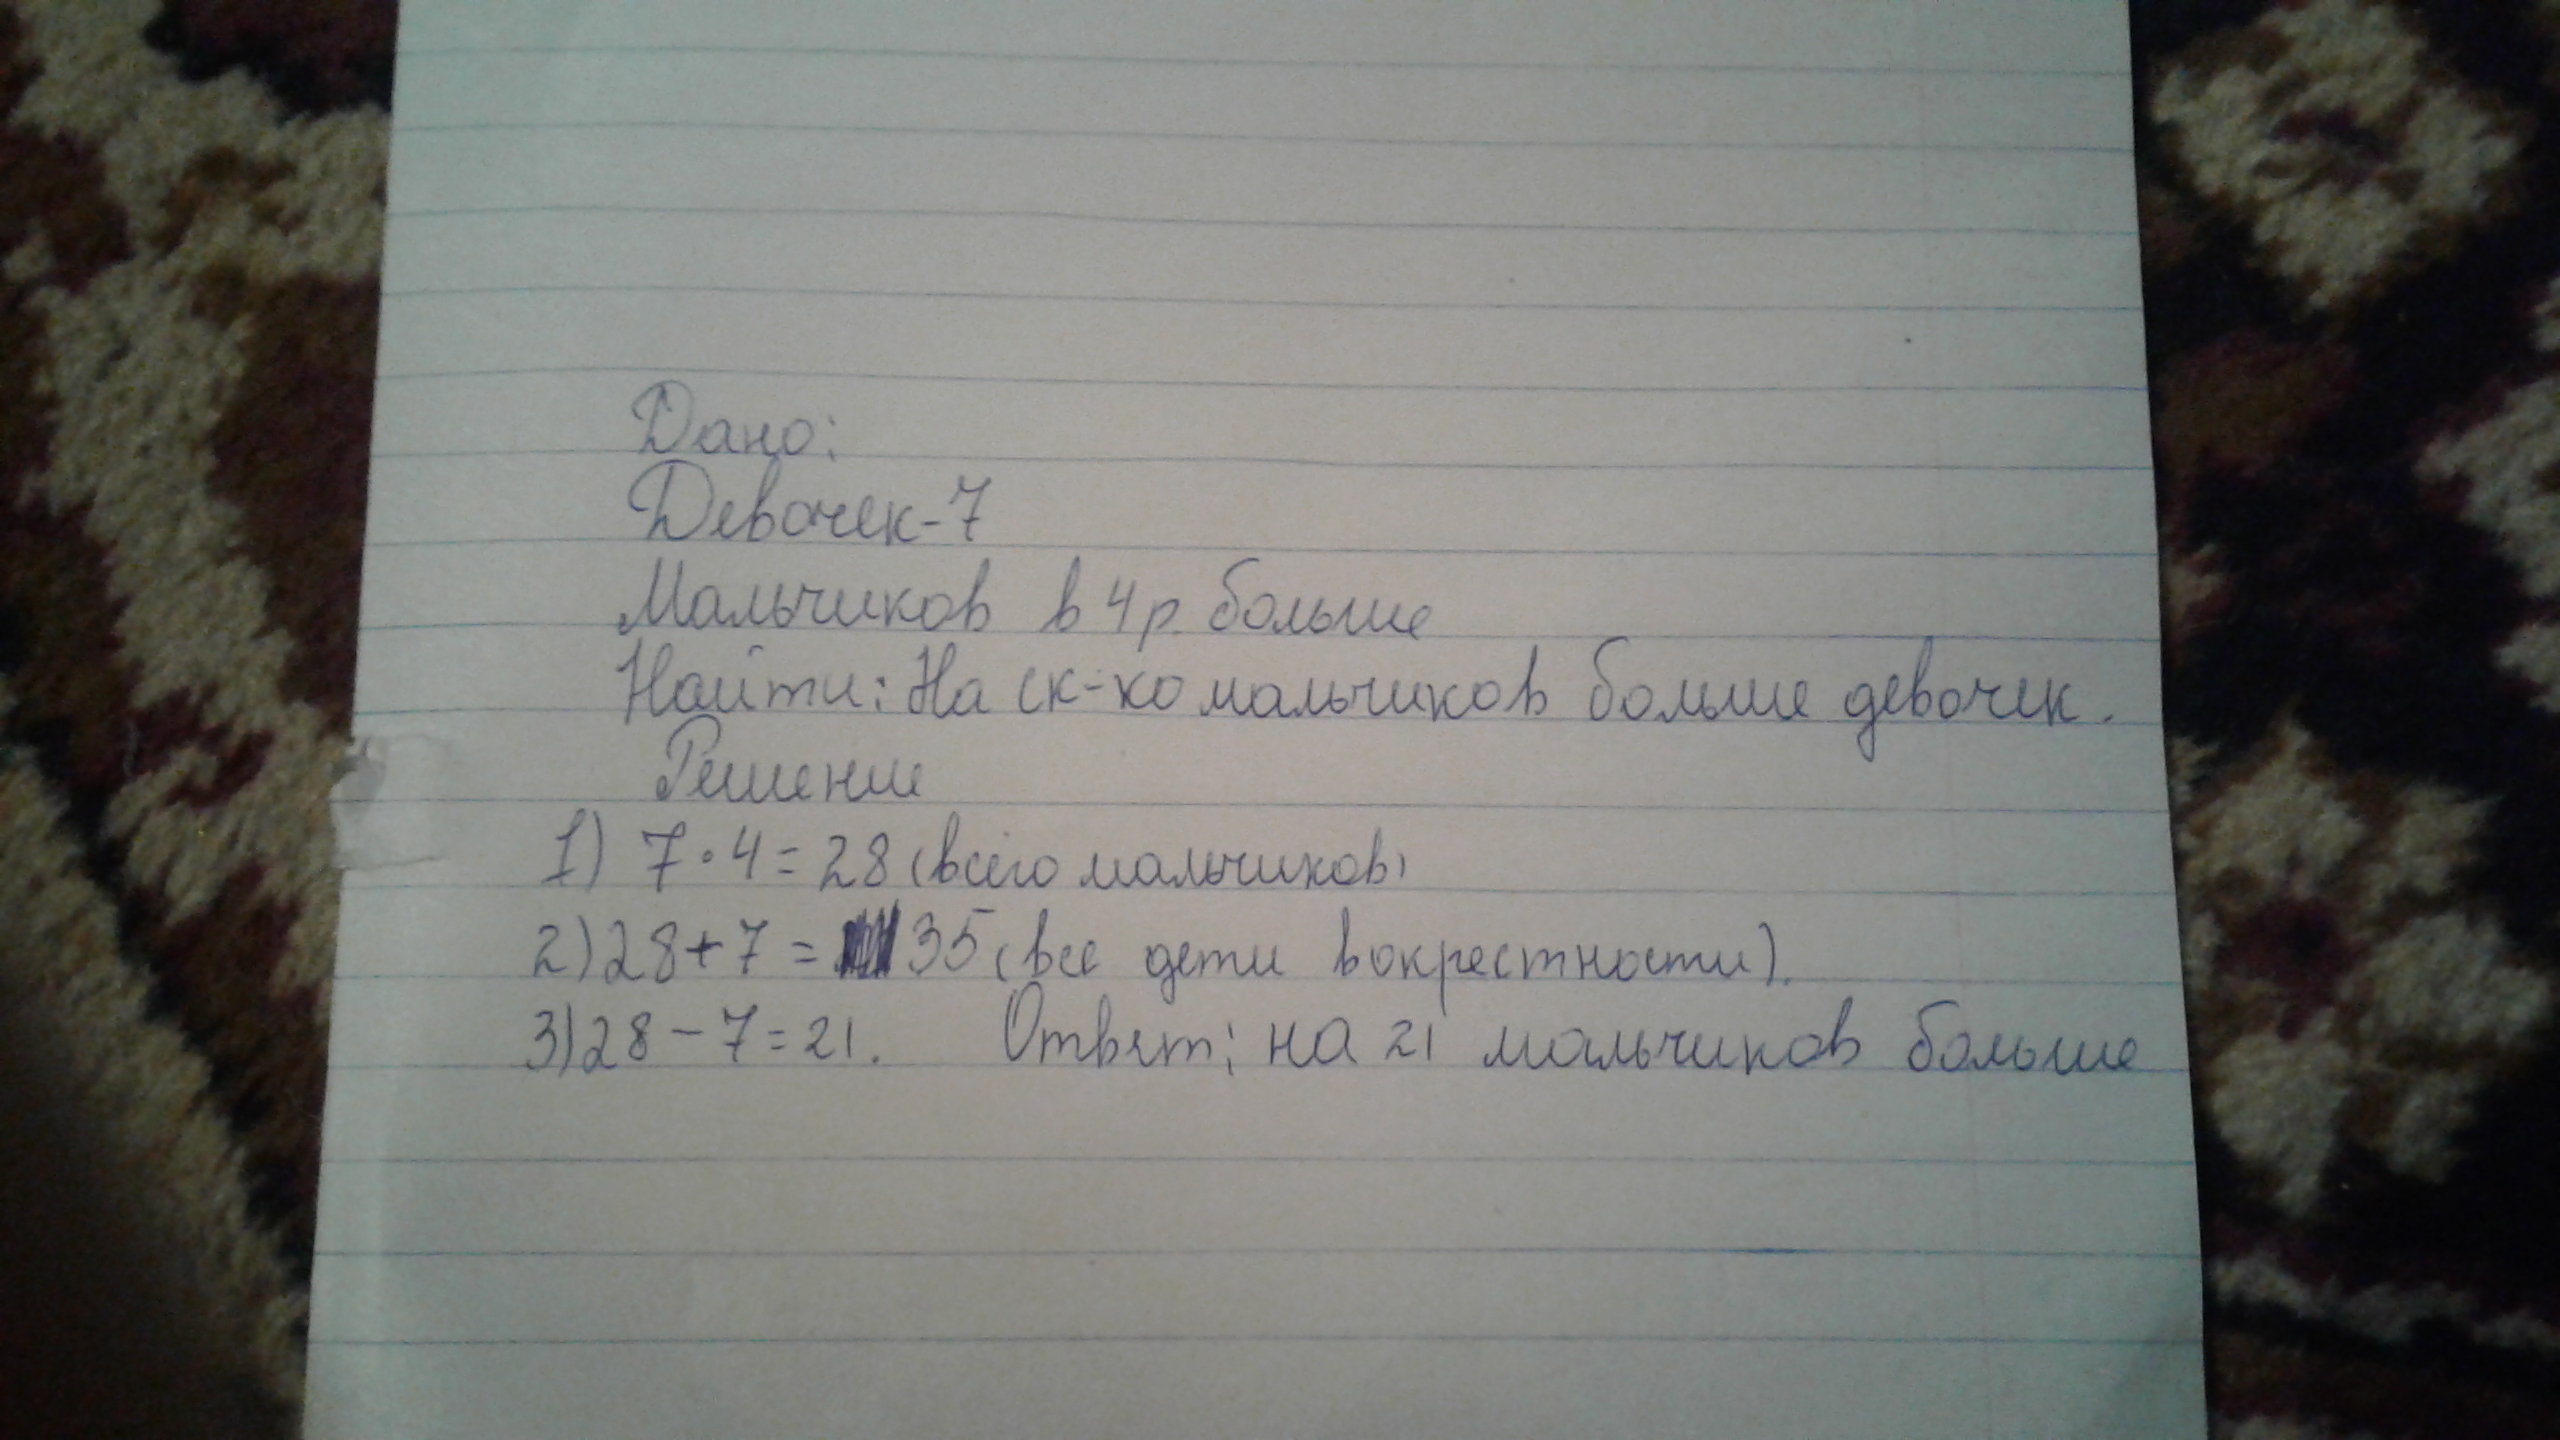 Дано:
Девочек-7
Мальчиков в 4 р. больше
Найти: На ск-ко мальчиков больше девочек.
Решение
1) 7 · 4 = 28 (всего мальчиков)
2) 28 + 7 = 35 (все дети вокрестности).
3) 28 - 7 = 21. Ответ: на 21 мальчиков больше